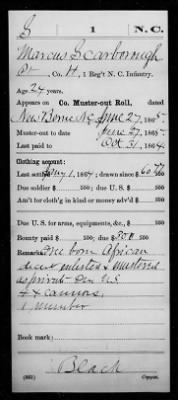 S 1 N.C.
Marcus Scarborough
Pt, Co. H, 1 Reg't N. C. Infantry.
Age 24 years.
Appears on Co. Muster-out Roll, dated
New Berne N.C. June 27, 186
Muster-out to date June 27, 186
Last paid to Oct 31, 1864
Clothing account:
Last settled Jany 1, 1864; drawn since $ 60 77/100
Due soldier $ 100; due U. S. $ 100
Am't for cloth'g in kind or money adv'd $ 100
Due U. S. for arms, equipments, &c., $ 100
Bounty paid $ 100; due $ 300 100
Remarks: Free born African
decent enlisted & mustered
as private
number
Book mark:
Black
Copyist.